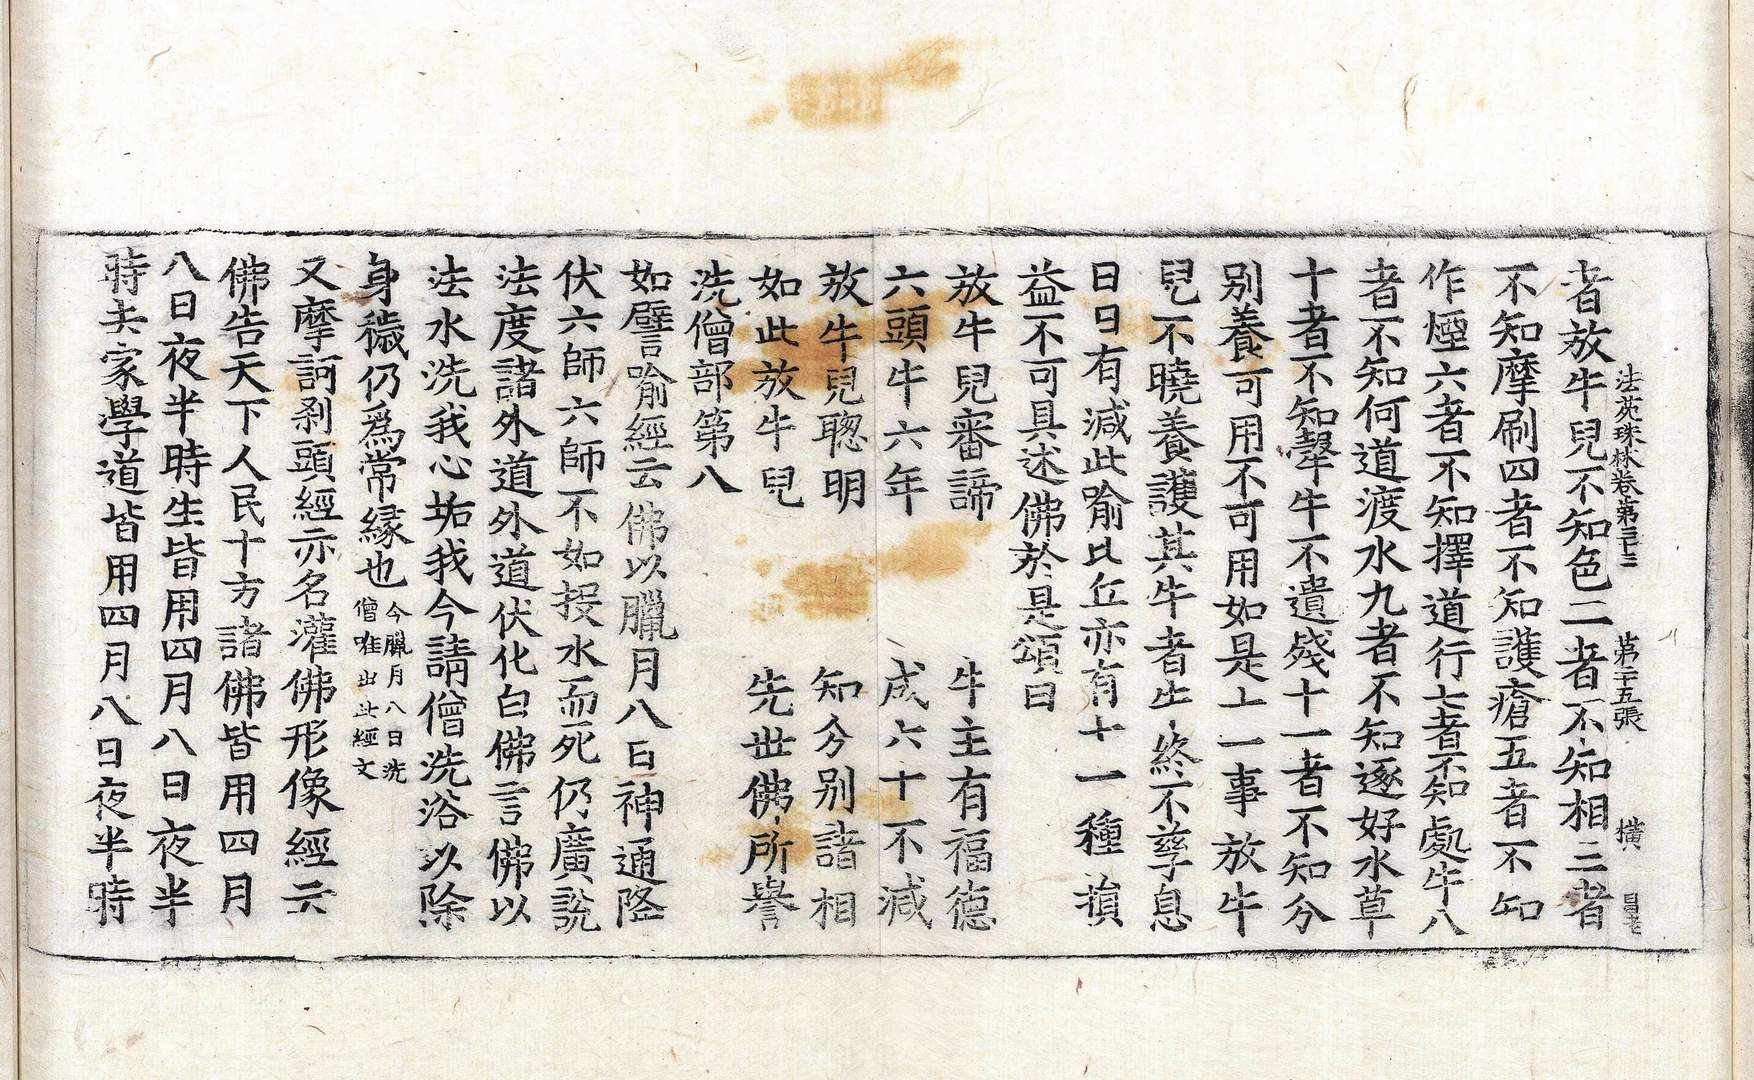 法苑珠林卷第三十三 第二十五張 橫
者放牛兒不知色二者不知相三者
不知摩刷四者不知護瘡五者不知
作煙六者不知擇道行七者不知處牛八
者不知何道渡水九者不知逐好水草
十者不知𤛗牛不遺殘十一者不知分
別養可用不可用如是上一事放牛
兒不曉養護其牛者牛終不孳息
日日有減此喻比丘亦有十一種損
益不可具述佛於是頌曰
放牛兒審諦 牛主有福德
六頭牛六年 成六十不減
放牛兒聰明 知分別諸相
如此放牛兒 先世佛所譽
洗僧部第八
如譬喻經云佛以臘月八日神通降
伏六師六師不如投水而死仍廣說
法度諸外道外道伏化白佛言佛以
法水洗我心垢我今請僧洗浴以除
身穢仍爲常緣也今臘月八日洗僧唯出此經文
又摩訶剎頭經亦名灌佛形像經云
佛告天下人民十方諸佛皆用四月
八日夜半時生皆用四月八日夜半
時去家學道皆用四月八日夜半時